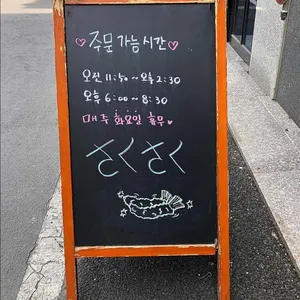 ♡주문 가능 시간♡
오전 11:40 ~ 오후 2:30
오후 6:00 ~ 8:30
매주 화요일 휴무♥
さくさく